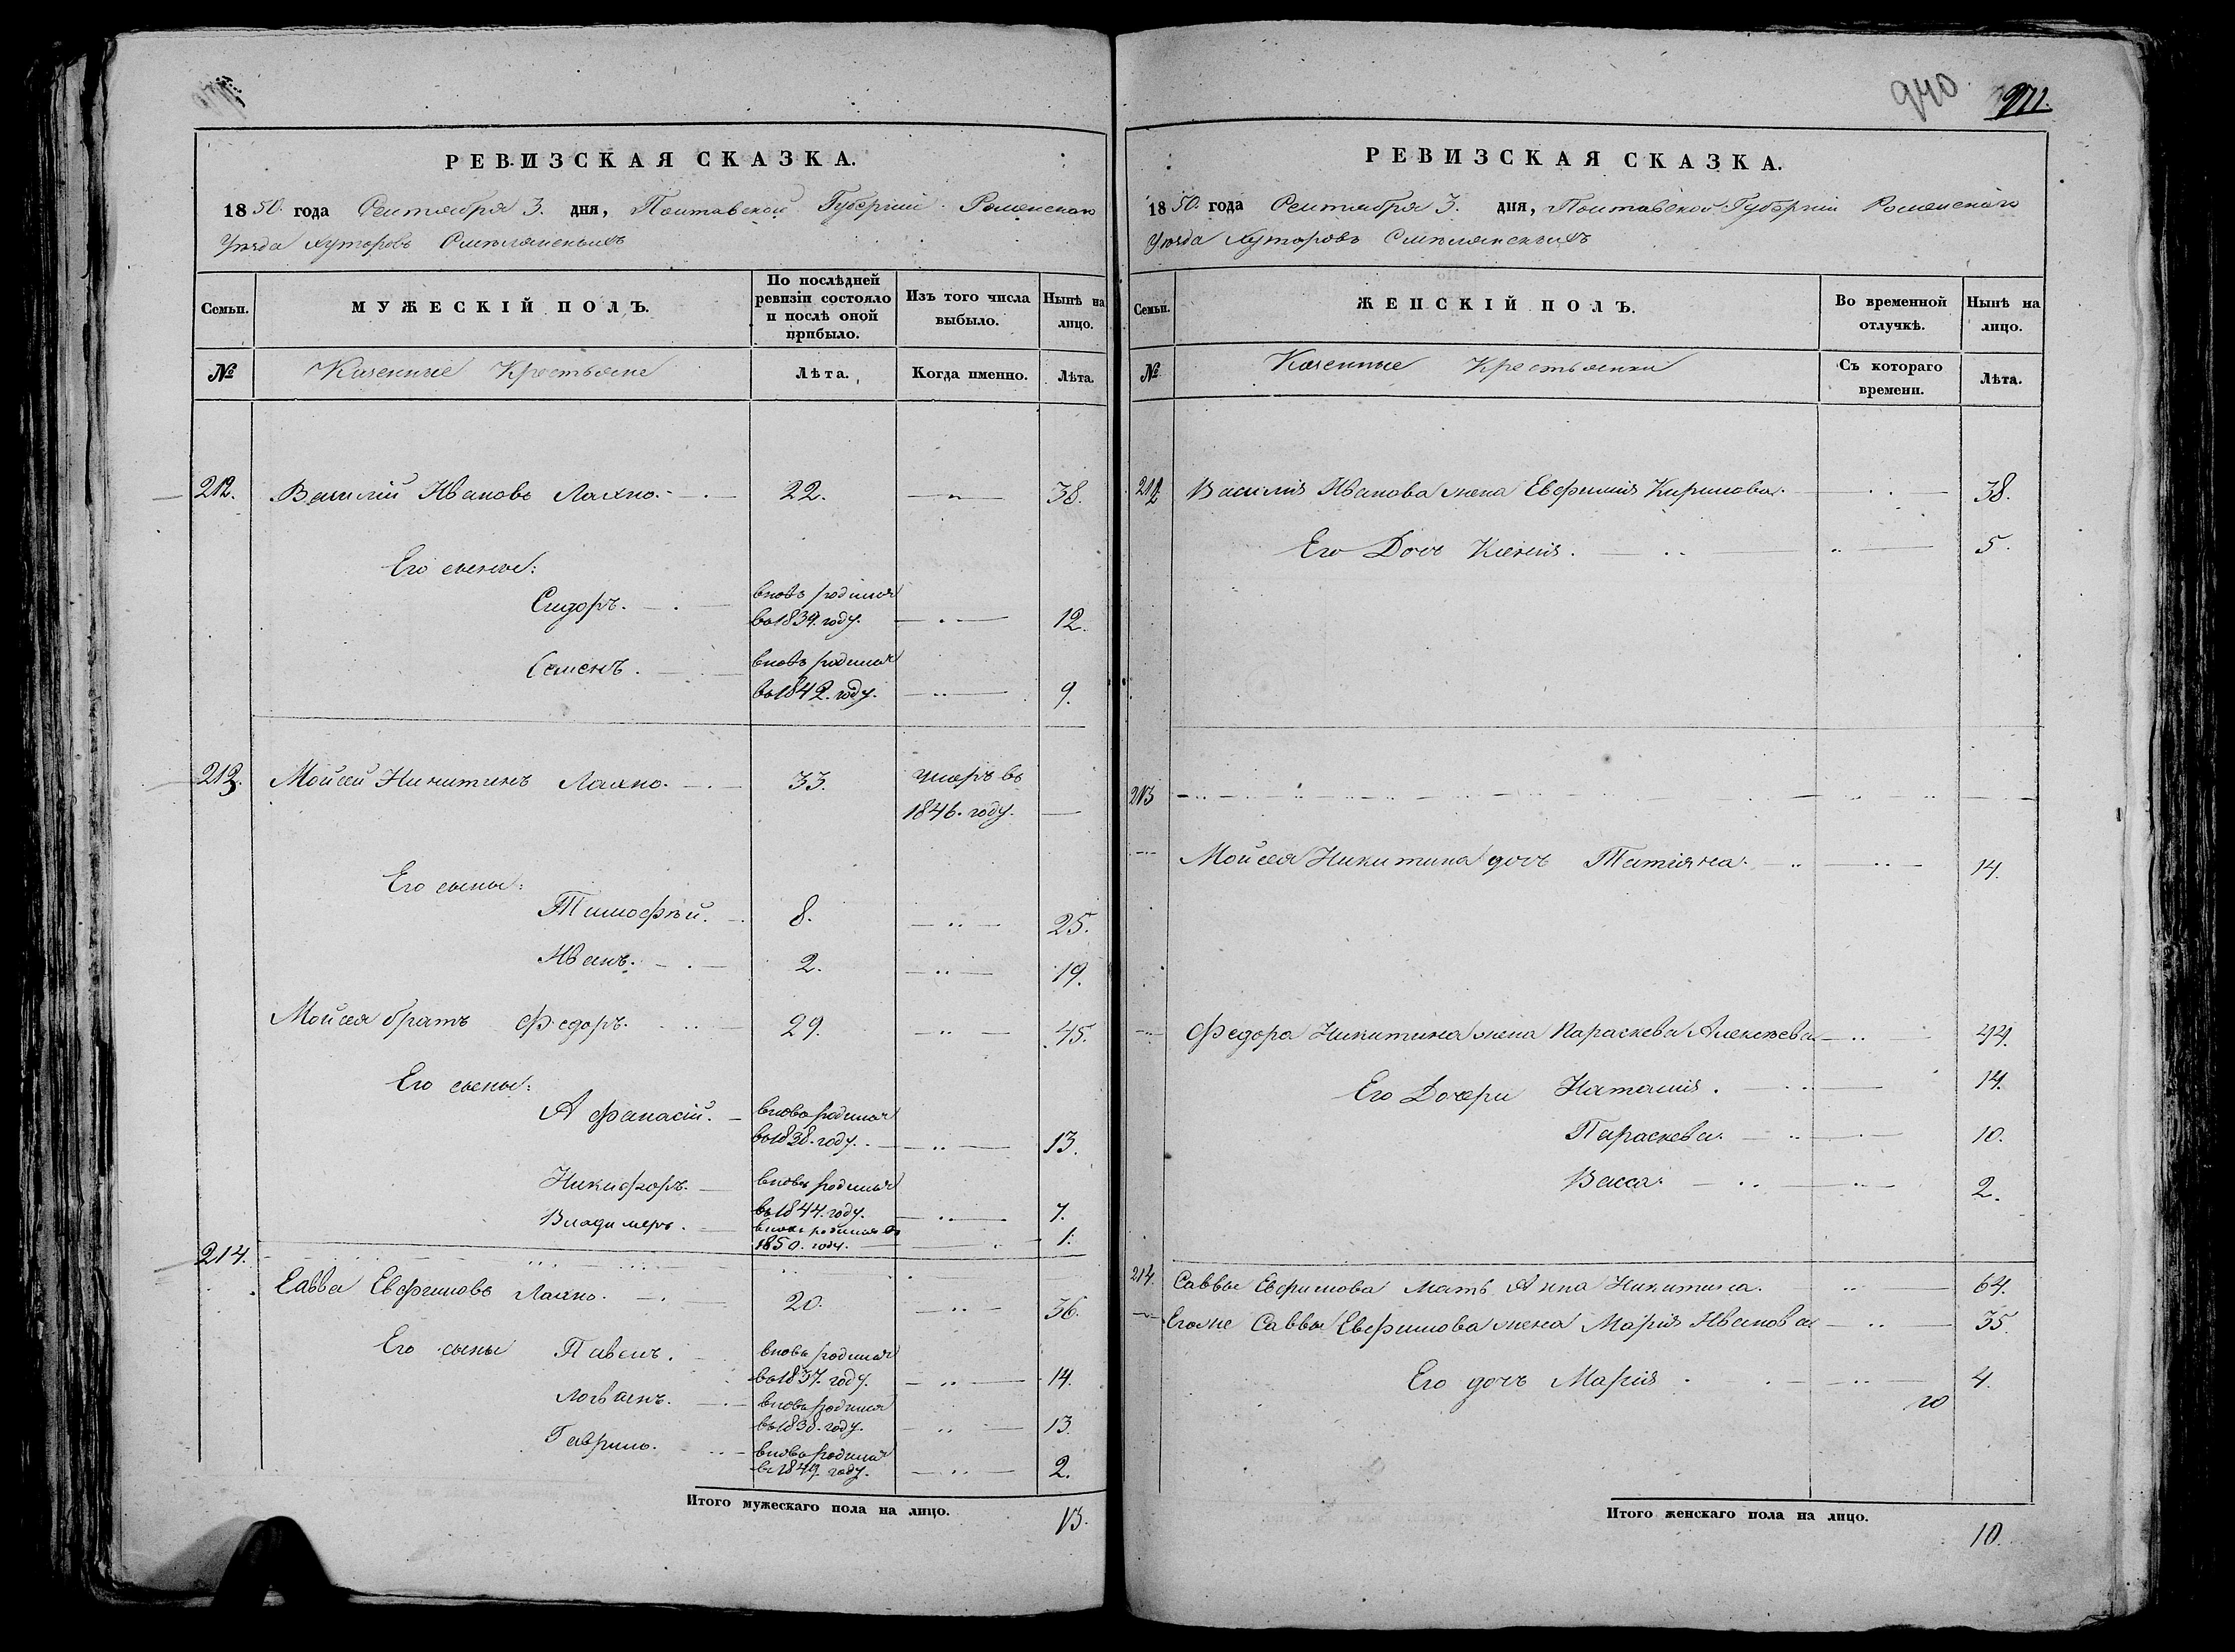 РЕВИЗСКАЯ СКАЗКА.
1850. года Сентября 3. дня, Полтавской Губернии Роменского
Уѣзда Хуторовъ Смѣлянскихъ
Семьи.
МУЖЕСКІЙ ПОЛЪ.
По послѣдней ревизіи состояло и послѣ оной прибыло.
Изъ того числа выбыло.
Нынѣ на лицо.
№
Казенные Крестьяне
Лѣта.
Когда именно.
Лѣта.
212. Василій Ивановъ Лахно. 22. 38.
Его сыны:
Сидоръ. вновь родился
во 1839. году. 12.
Семенъ. вновь родился
во 1842. году. 9.
213. Мойсей Никитинъ Лахно. 33. умеръ въ
1846. году.
Его сыны:
Тимофѣй. 8. 25.
Иванъ. 2. 19.
Мойсея братъ Федоръ. 29. 45.
Его сыны:
Афанасій. вновь родился
во 1838. году. 13.
Никифоръ. вновь родился
во 1844. году. 7.
Владимеръ. вновь родился въ
1850. году. 1.
214.
Савва Евфимовъ Лахно. 20. 36.
Его сыны Павелъ. вновь родился
во 1837. году. 14.
Логвинъ. вновь родился
въ 1838. году. 13.
Гаврило. вновь родился
въ 1849. году. 2.
Итого мужескаго пола на лицо. 13.
940 971.
РЕВИЗСКАЯ СКАЗКА.
1850. года Сентября 3. дня, Полтавской Губерніи Роменскаго
Уѣзда Хуторовъ Смѣлянскихъ
Семьи.
ЖЕНСКІЙ ПОЛЪ.
Во временной отлучкѣ.
Нынѣ на лицо.
№
Казенные Крестьянки
Съ котораго времени.
Лѣта.
212 Василія Иванова жена Евфимія Кирилова. 38.
Его Дочь Ксенія. 5.
213
Мойсея Никитина дочь Татіяна. 14.
Федора Никитина жена Параскева Алексѣева 44.
Его Дочери Наталія. 14.
Параскева. 10.
Васса. 2.
214. Саввы Евфимова Мать Анна Никитина. 64.
Егоже Саввы Евфимова жена Марія Иванова 35.
Его дочь Марія 4.
10
Итого женскаго пола на лицо. 10.